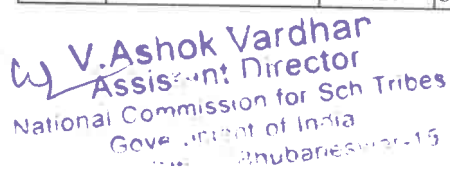 V.Ashok Vardhan
Assistant Director
National Commission for Sch Tribes
Government of India
Bhubaneswar-15